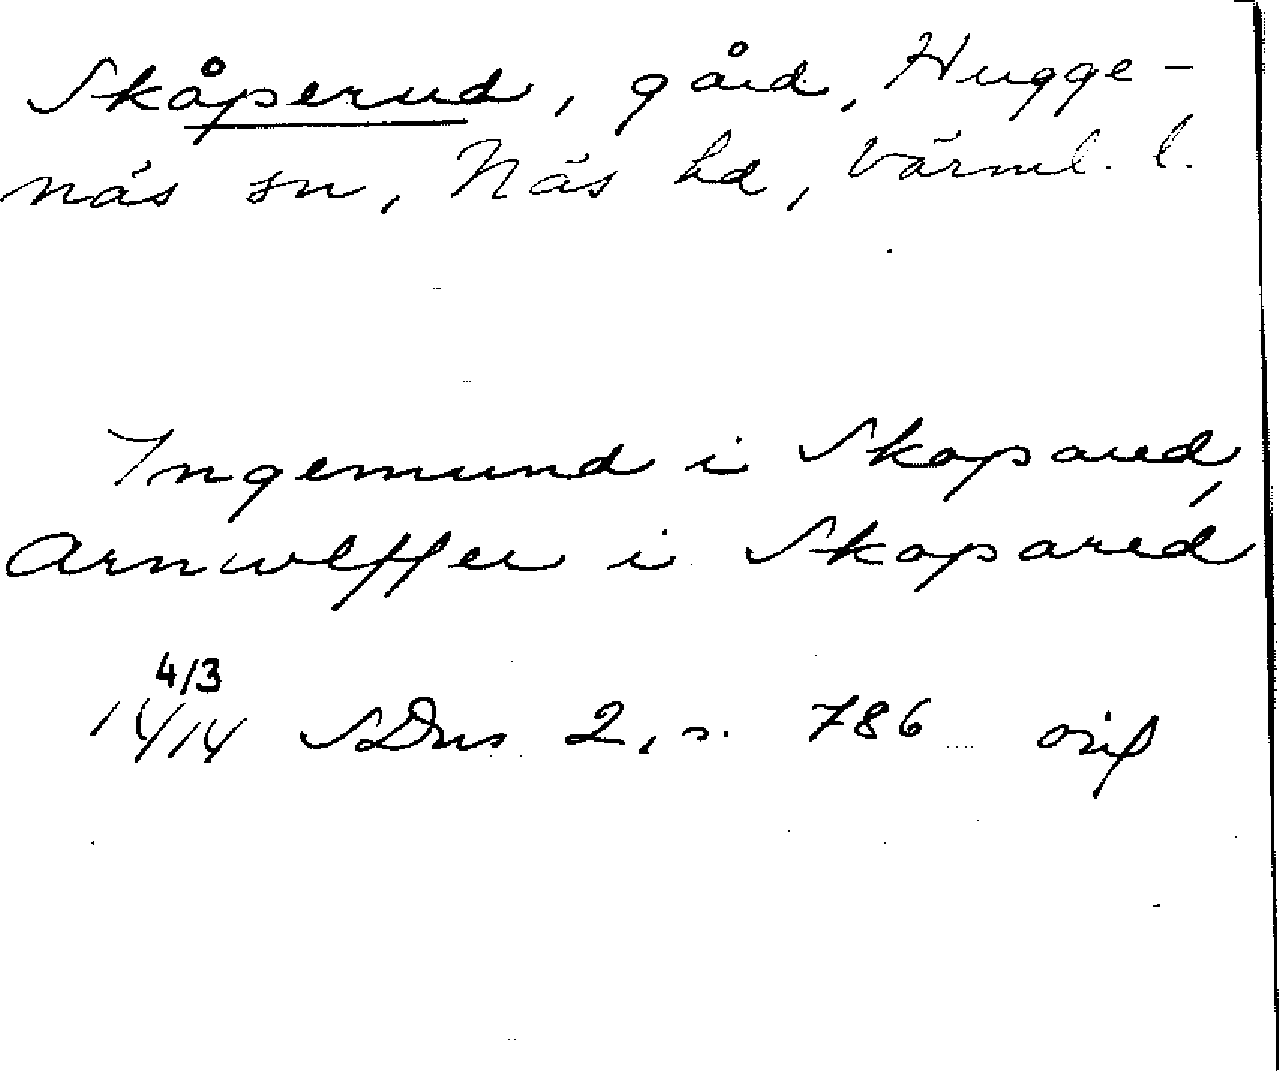 Skåperud, gård, Hugge-
näs sn, Näs hd, Värml. l.
Ingemund i Skapared,
Arnwlffer i Skapared
4/3
1414 SDns 2, s. 786 orig